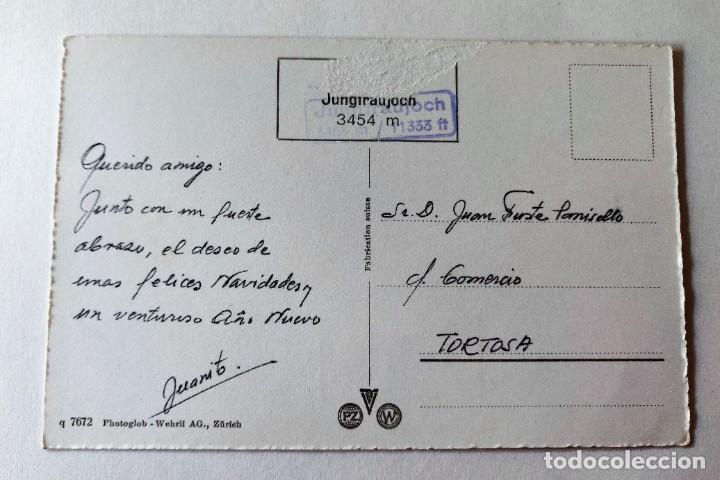 Jungfraujoch
3454 m
Jungfraujoch
3454 m / 11333 ft
Querido amigo:
Junto con un fuerte
abrazo, el deseo de
unas felices Navidades y
un venturoso Año Nuevo
Juanito.
Fabrication suisse
Sr. D. Juan Fuste
c/ Comercio
TORTOSA
PZ
W
q 7672 Photoglob - Wehrli AG., Zürich
todocoleccion